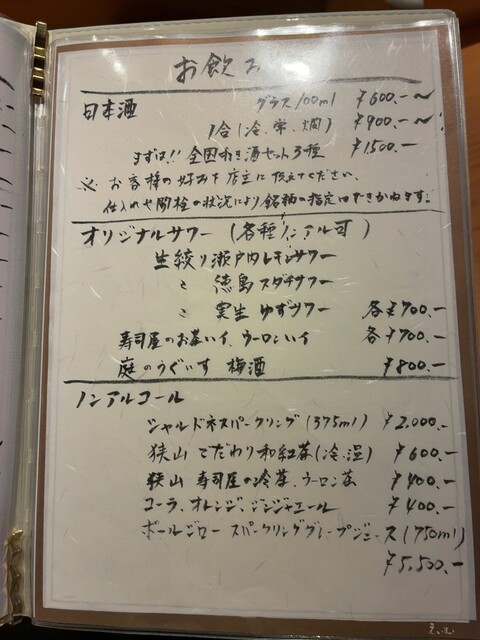 お飲み
日本酒 グラス100ml ¥600.-〜
1合(冷、常、燗) ¥900.-〜
まずは!! 全国利き酒セット3種 ¥1,500.-
※ お客様の好みを店主に伝えてください。
仕入れや開栓の状況により銘柄の指定はできかねます。
オリジナルサワー (各種ノンアル可)
生絞り瀬戸内レモンサワー
〃 徳島スダチサワー
〃 実生ゆずサワー 各¥700.-
寿司屋のお茶ハイ、ウーロンハイ 各¥700.-
庭のうぐいす 梅酒 ¥800.-
ノンアルコール
シャルドネスパークリング(375ml) ¥2,000.-
狭山 こだわり和紅茶(冷、温) ¥600.-
狭山 寿司屋の冷茶、ウーロン茶 ¥400.-
コーラ、オレンジ、ジンジャエール ¥400.-
ポールジロー スパークリンググレープジュース(750ml)
¥5,500.-